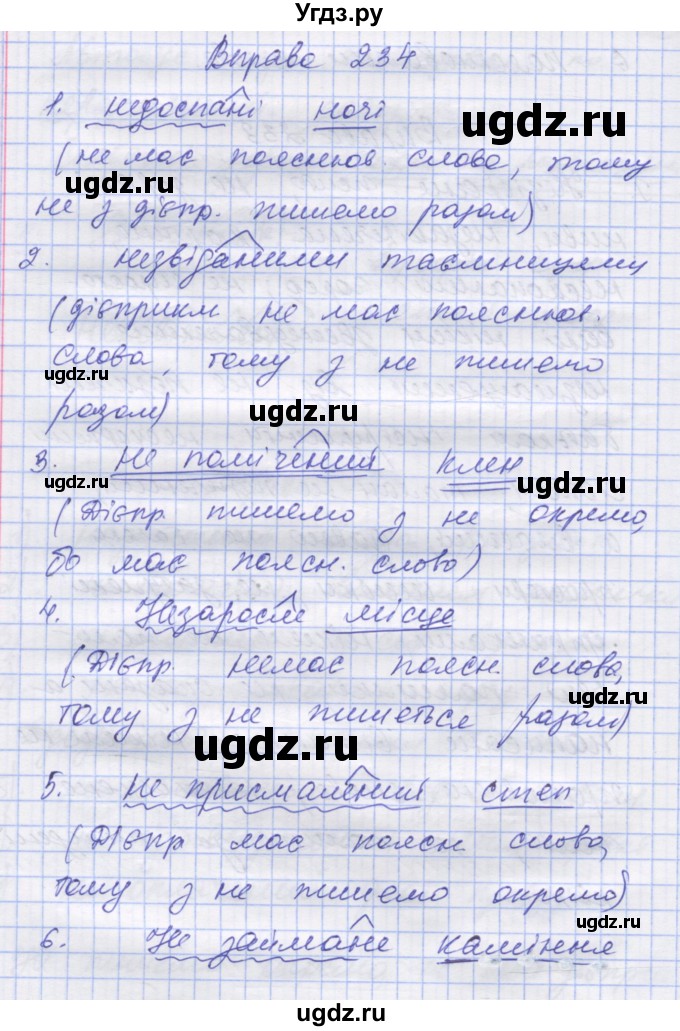 Угдз.ру
Вправа 234
ugdz.ru
1. недоспані ночі
(не має пояснюв. слова, тому
ugdz.ru
не з дієпр. пишемо разом)
2. незвіданими таємницему
(дієприкм не має пояснюв.
слова, тому з не пишемо
ugdz.ru
ugdz.ru
разом)
ugdz.ru
3. не помічений клен
ugdz.ru
ugdz.ru
(Дієпр пишемо з не окремо,
бо має поясн. слово)
4. Незаросле місце
(Дієпр. немає поясн. слова,
ugdz.ru
тому з не пишеться разом)
ugdz.ru
5. не присмалений степ
(Дієпр має поясн. слова,
тому з не пишемо окремо)
ugdz.ru
6. Не займане каміння
ugdz.ru